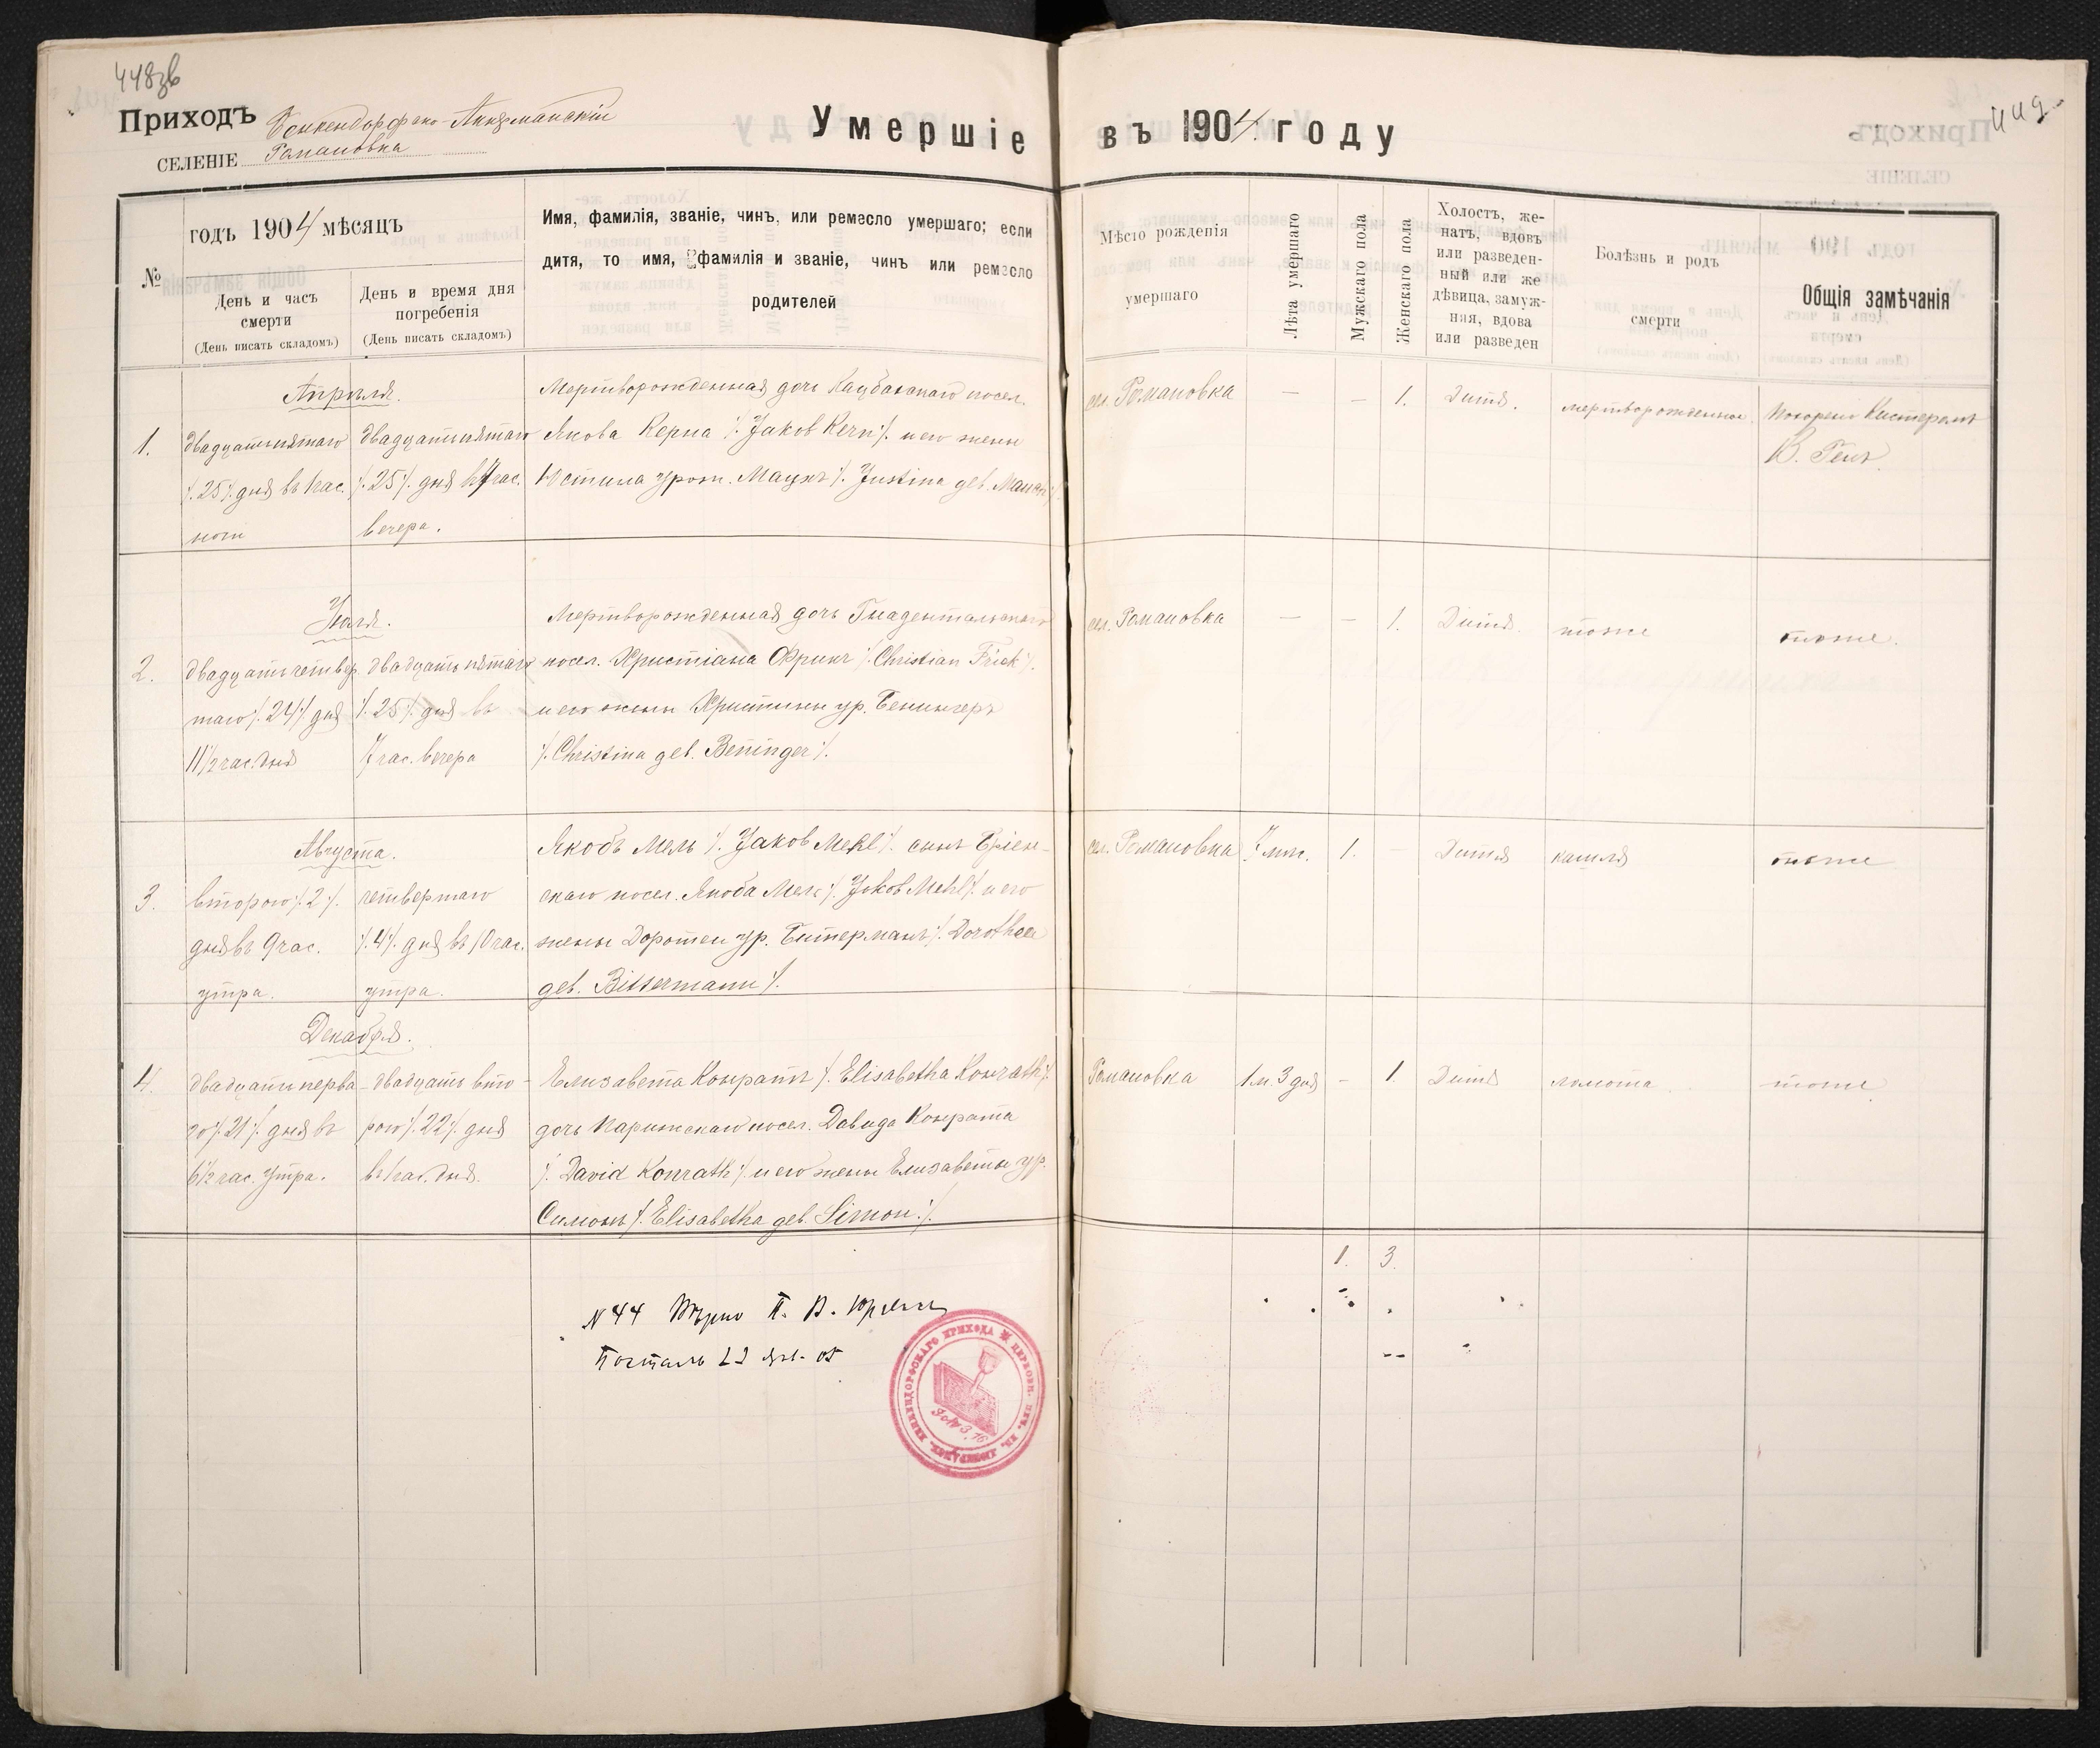 448об
Приходъ Бенкендорфско-Аккерманскій
СЕЛЕНІЕ Романовка
Умершіе въ 1904 году
449
№
годъ 1904 мѣсяцъ
День и часъ
смерти
(День писать складомъ)
День и время дня
погребенія
(День писать складомъ)
Имя, фамилія, званіе, чинъ, или ремесло умершаго; если
дитя, то имя, фамилія и званіе, чинъ или ремесло
родителей
Мѣсто рожденія
умершаго
Лѣта умершаго
Мужскаго пола
Женскаго пола
Холостъ, же-
натъ, вдовъ
или разведен-
ный или же
дѣвица, замуж-
няя, вдова
или разведен
Болѣзнь и родъ
смерти
Общія замѣчанія
Апрѣля.
1.
двадцатьпятаго
/.25/. дня въ 1 час.
ночи
двадцатьпятаго
/.25/. дня в 7 час.
вечера.
Мертворожденная дочь посел.
Якова Керна /. Jakob Kern /. и его жены
урож. /. Justina geb.
сел. Романовка
—
—
1.
Дитя.
мертворожденное.
Кистеромъ
Іюля.
2.
двадцатьчетвер
таго /.24/. дня
11 1/2 час. дня
двадцатьпятаго
/.25/. дня въ
7 час. вечера
Мертворожденная дочь Гнадентальскаго
посел. Христіана Фрикъ /. Christian Frick /.
и его жены Христины ур. Бенингеръ
/. Christina geb. Beninger /.
сел. Романовка
—
—
1.
Дитя.
тоже
тоже.
Августа.
3.
второго /.2/.
дня въ 9 час.
утра.
четвертаго
/.4/. дня въ 10 час.
утра.
Якобъ Мель /. Jakob Mehl /. сынъ Бріен-
скаго посел. Якоба Мель /. Jakob Mehl /. и его
жены Доротеи ур. Битерманъ /. Dorothea
geb. Bittermann /.
сел. Романовка
7 мѣс.
1.
—
Дитя
кашля
тоже
Декабря.
4.
двадцатьперва-
го /.21/. дня въ
6 1/2 час. утра.
двадцать вто-
рого /.22/. дня
въ 1 час. дня.
Елизавета Конратъ /. Elisabetha Konrath /.
дочь Парижскаго посел. Давида Конрата
/. David Konrath /. и его жены Елизаветы ур.
Симонъ /. Elisabetha geb. Simon /.
Романовка
1 м. 3 дня
—
1.
Дитя
ломота
тоже.
1. 3.
N 44 Вѣрно П.
Посталь 05
Joh 3,16